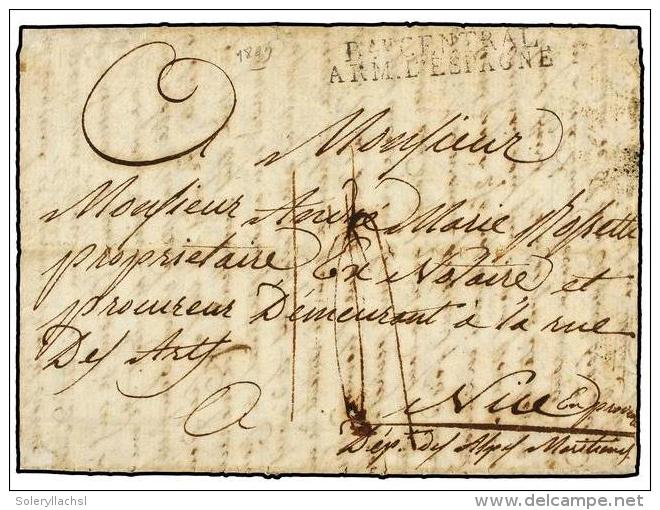 1809
Bau CENTRAL.
ARM. D'ESPAGNE
A Monsieur
Monsieur André Marie Rossetti
proprietaire Ex Notaire et
procureur Démeurant à la rue
Des Arts
A Nice En proven
Dép. des Alpes Maritimes
Soleryllachsl
delcampe.net